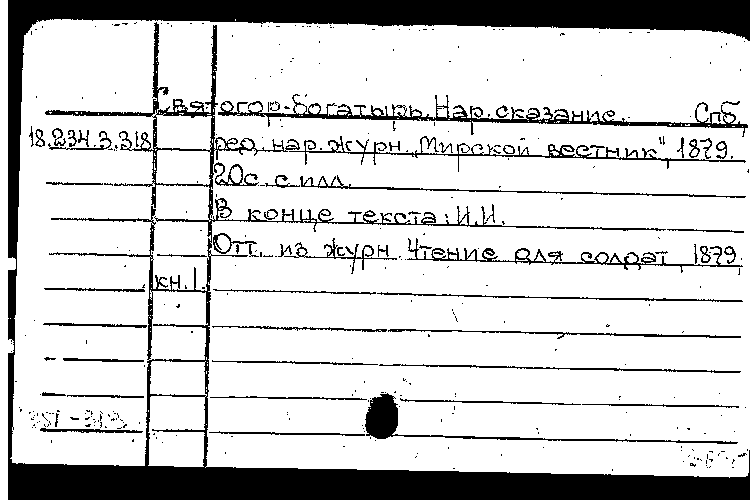 Святогор-богатырь. Нар. сказание. Спб,
18.234.3.318 ред. нар. журн. „Мирской вестник", 1879.
20с. с илл.
В конце текста: И.И.
Отт. из журн. Чтение для солдат, 1879.
кн.1.